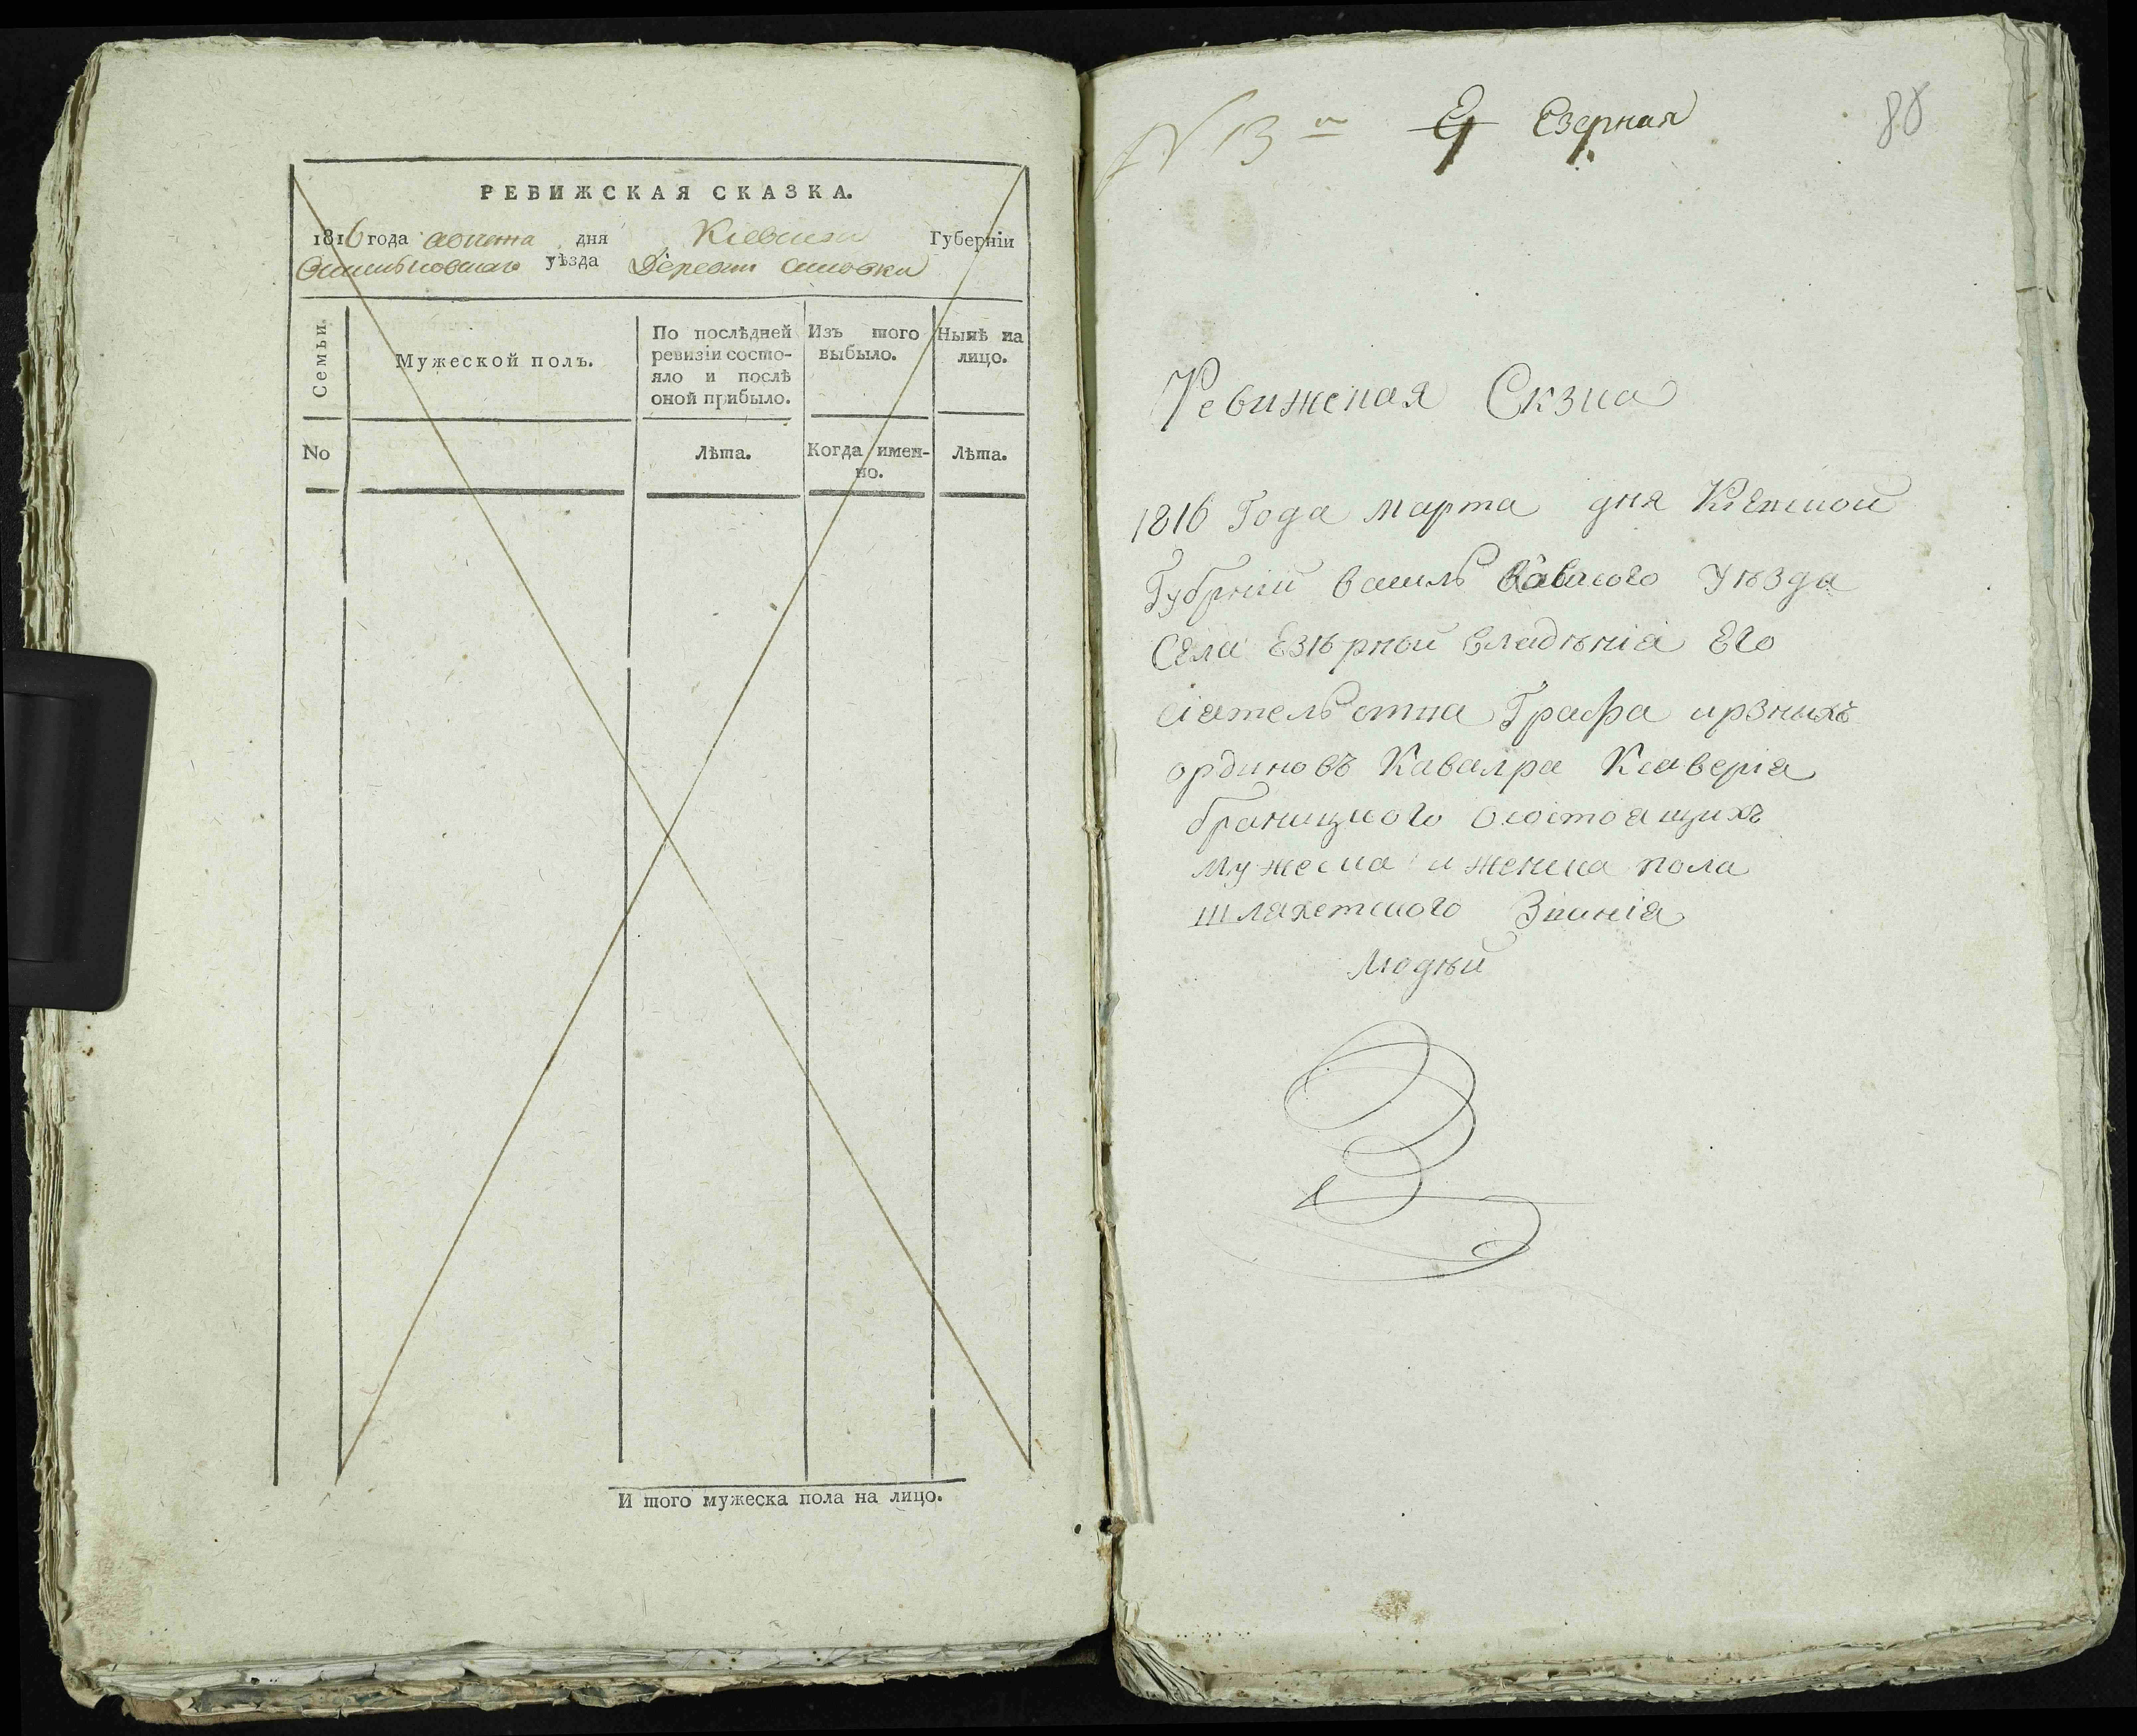 РЕВИЖСКАЯ СКАЗКА.
1816 года дня Киевской Губерніи
уѣзда Деревни
Семьи.
Мужеской полъ.
По послѣдней ревизіи состо-
яло и послѣ
оной прибыло.
Изъ того
выбыло.
Нынѣ на
лицо.
No
Лѣта.
Когда имен-
но.
Лѣта.
И того мужеска пола на лицо.
N 13 Езерная
88
Ревижская Скзка
1816 Года марта дня Кіевской
Губрніи василь Ковского Уѣзда
Села Езѣрной владѣнія Его
сіятельства Графа ирзныхъ
ординовъ Кавалра Ксаверія
браницкого Осостоящихъ
мужеска и женска пола
шляхетского Званія
людѣй